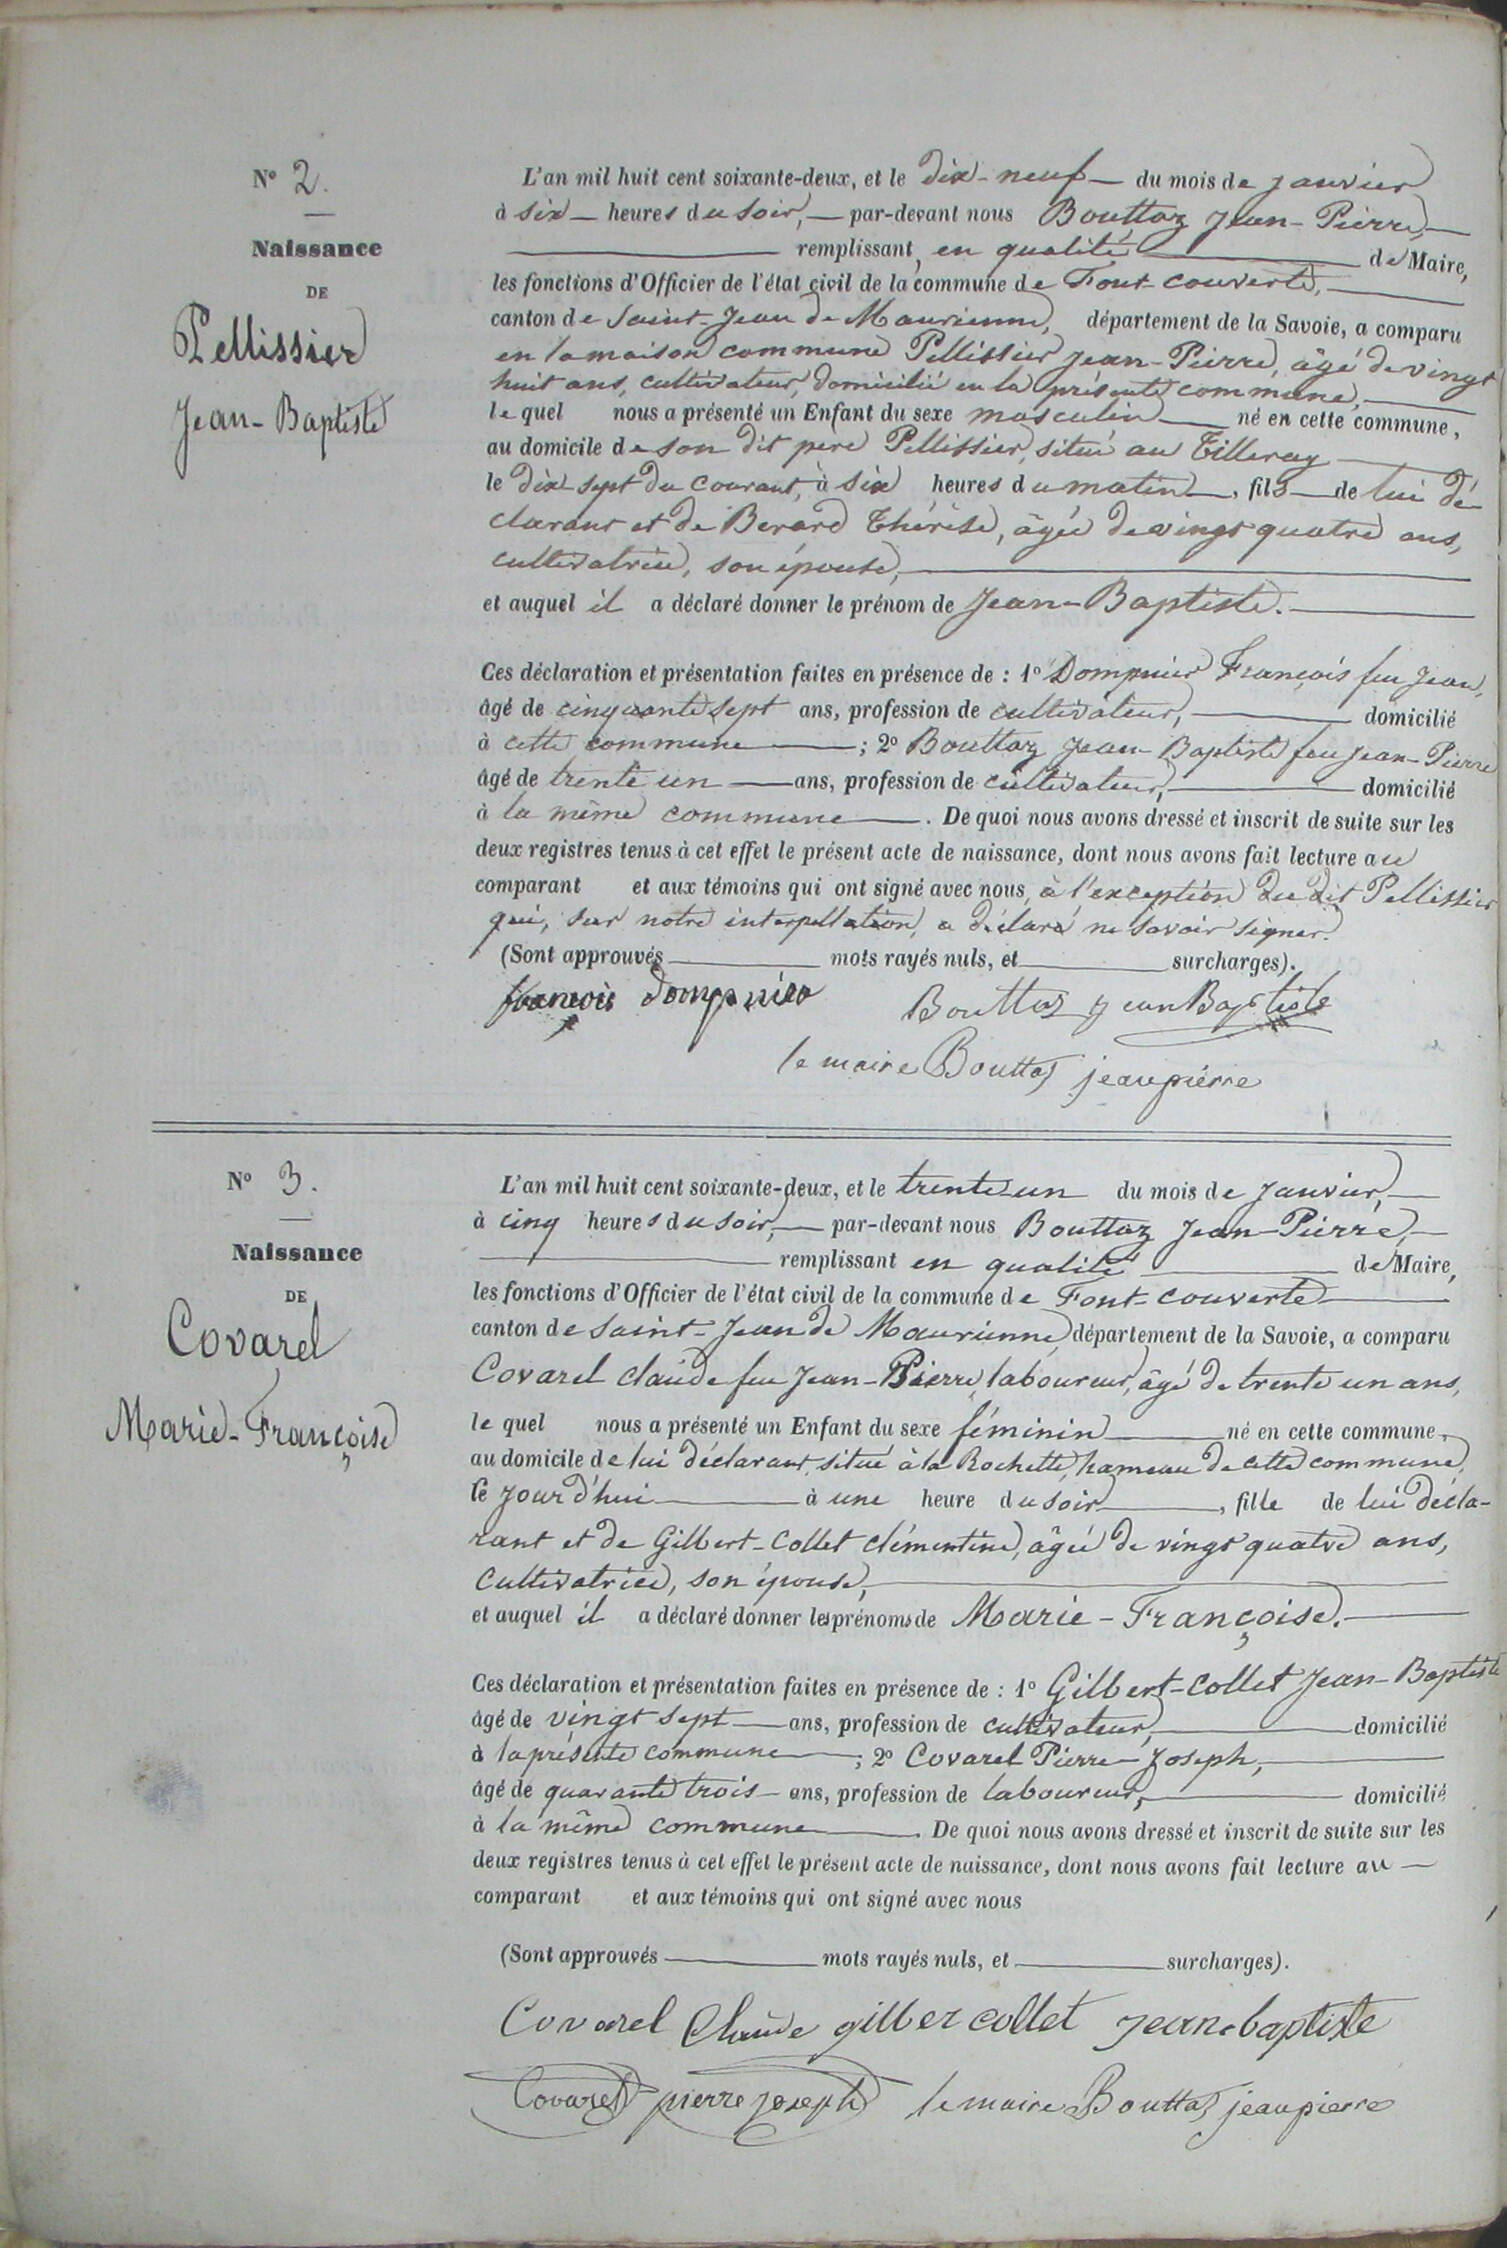 N° 2.
Naissance
DE
Pellissier
Jean-Baptiste
L'an mil huit cent soixante-deux, et le dix-neuf du mois de janvier
à six heures du soir, par-devant nous Bouttaz Jean-Pierre,
remplissant, en qualité de Maire,
les fonctions d'Officier de l'état civil de la commune de Font-couverte,
canton de Saint-Jean de Maurienne, département de la Savoie, a comparu
en la maison commune Pellissier Jean-Pierre, âgé de vingt
huit ans, cultivateur, domicilié en la présente commune,
le quel nous a présenté un Enfant du sexe masculin né en cette commune,
au domicile de son dit père Pellissier, situé au Tilleray
le dix-sept du courant, à six heures du matin, fils de lui dé-
clarant et de Berard Thérèse, âgée de vingt quatre ans,
cultivatrice, son épouse,
et auquel il a déclaré donner le prénom de Jean-Baptiste.
Ces déclaration et présentation faites en présence de : 1° Dompnier François feu Jean,
âgé de cinquante sept ans, profession de cultivateur, domicilié
à cette commune ; 2° Bouttaz Jean-Baptiste feu Jean-Pierre
âgé de trente un ans, profession de cultivateur, domicilié
à la même commune. De quoi nous avons dressé et inscrit de suite sur les
deux registres tenus à cet effet le présent acte de naissance, dont nous avons fait lecture au
comparant et aux témoins qui ont signé avec nous, à l'exception du dit Pellissier
qui, sur notre interpellation, a déclaré ne savoir signer.
(Sont approuvés mots rayés nuls, et surcharges).
françois dompnier Bouttaz jean Baptiste
le maire Bouttaz jean pierre
N° 3.
Naissance
DE
Covarel
Marie-Françoise
L'an mil huit cent soixante-deux, et le trente-un du mois de Janvier,
à cinq heures du soir, par-devant nous Bouttaz Jean-Pierre,
remplissant en qualité de Maire,
les fonctions d'Officier de l'état civil de la commune de Font-couverte
canton de Saint-Jean de Maurienne, département de la Savoie, a comparu
Covarel claude feu Jean-Pierre, laboureur, âgé de trente un ans,
le quel nous a présenté un Enfant du sexe féminin né en cette commune,
au domicile de lui déclarant, situé à la Rochette, hameau de cette commune,
le jourd'hui à une heure du soir, fille de lui décla-
rant et de Gilbert-Collet clémentine, âgée de vingt quatre ans,
cultivatrice, son épouse,
et auquel il a déclaré donner les prénoms de Marie-Françoise.
Ces déclaration et présentation faites en présence de : 1° Gilbert-Collet Jean-Baptiste
âgé de vingt sept ans, profession de cultivateur, domicilié
à la présente commune ; 2° Covarel Pierre-Joseph,
âgé de quarante trois ans, profession de laboureur, domicilié
à la même commune. De quoi nous avons dressé et inscrit de suite sur les
deux registres tenus à cet effet le présent acte de naissance, dont nous avons fait lecture au
comparant et aux témoins qui ont signé avec nous
(Sont approuvés mots rayés nuls, et surcharges).
Covarel Claude gilber collet jean-baptiste
Covarel pierre joseph le maire Bouttaz jean pierre